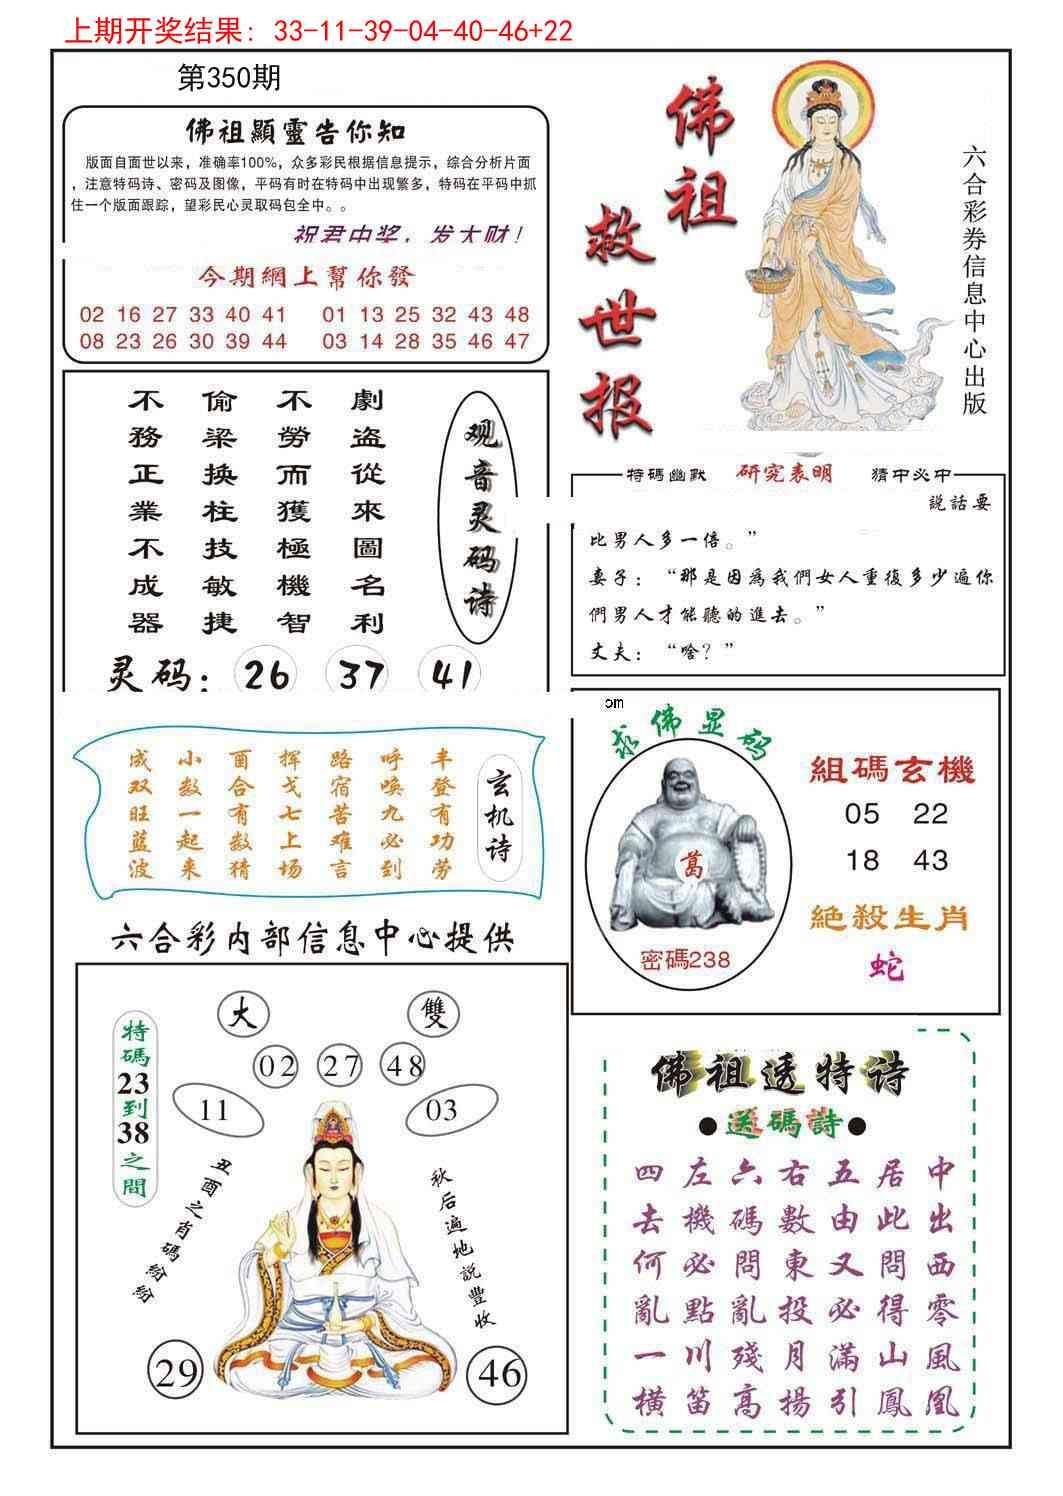 上期开奖结果：33-11-39-04-40-46+22
第350期
佛祖顯靈告你知
版面自面世以来，准确率100%，众多彩民根据信息提示，综合分析片面
，注意特码诗、密码及图像，平码有时在特码中出现繁多，特码在平码中抓
住一个版面跟踪，望彩民心灵取码包全中。。
祝君中奖，发大财！
今期網上幫你發
02 16 27 33 40 41 01 13 25 32 43 48
08 23 26 30 39 44 03 14 28 35 46 47
佛祖
救世报
六合彩券信息中心出版
观音灵码诗
劇盗從來圖名利
不勞而獲極機智
偷梁换柱技敏捷
不務正業不成器
灵码：26 37 41
特碼幽默 研究表明 猜中必中
説話要
比男人多一倍。”
妻子：“那是因為我們女人重復多少遍你
們男人才能聽的進去。”
丈夫：“啥？”
om
求佛显码
葛
密碼238
組碼玄機
05 22
18 43
絶殺生肖
蛇
玄机诗
丰登有功劳
呼唤九必到
路宿苦难言
挥戈七上场
酉合有数猜
小数一起来
成双旺蓝波
六合彩内部信息中心提供
特碼23到38之間
大 雙
02 27 48
11 03
丑酉之肖碼紛紛
秋后遍地説豐收
29 46
佛祖透特诗
●送碼詩●
中出西零風凰
居此問得山鳳
五由又必滿引
右數東投月揚
六碼問亂殘高
左機必點川笛
四去何亂一横